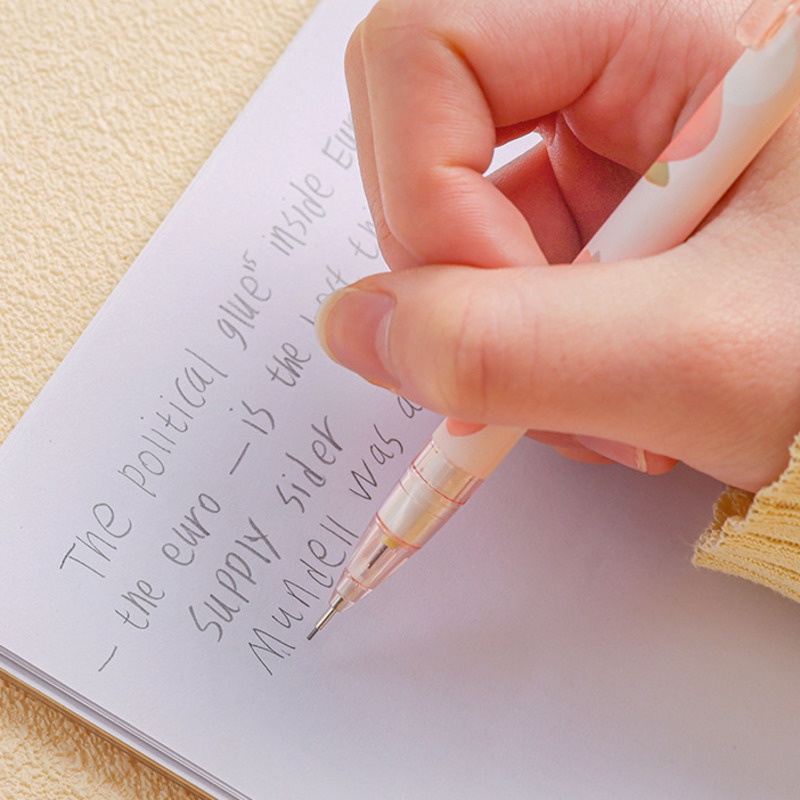 The political glue" inside
— the euro — is the
Supply sider
Mundell was